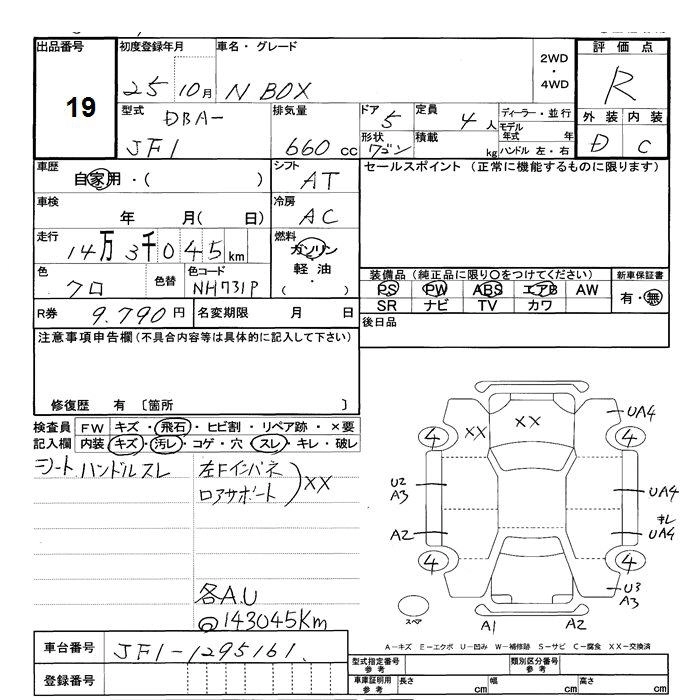 出品番号
19
初度登録年月
25 10月
車名・グレード
N BOX
2WD
・
4WD
評価点
R
外装 内装
D C
型式
DBA-
JF1
排気量
660 cc
ドア
5
形状
ワゴン
定員
4人
積載
kg
ディーラー・並行
モデル年式 年
ハンドル 左・右
車歴
自家用・( )
シフト
AT
セールスポイント(正常に機能するものに限ります)
車検
年 月( 日)
冷房
AC
走行
14万3千045km
燃料
ガソリン
軽油
( ・ )
色
クロ
色替
色コード
NH731P
装備品(純正品に限り○をつけてください)
PS PW ABS エアB AW
SR ナビ TV カワ
新車保証書
有・無
R券
9.790円
名変期限 月 日
後日品
注意事項申告欄(不具合内容等は具体的に記入して下さい)
修復歴 有 〔箇所 〕
検査員記入欄
FW キズ・飛石・ヒビ割・リペア跡・×要
内装 キズ・汚レ・コゲ・穴・スレ・キレ・破レ
シート ハンドルスレ
左Fインパネ
ロアサポート
)XX
各A.U
143045Km
XX
XX
UA4
4
4
U2
A3
UA4
A2
キレ
UA4
4
4
U3
A3
スペア
A1
A2
A－キズ E－エクボ U－凹み W－補修跡 S－サビ C－腐食 XX－交換済
車台番号
JF1-1295161.
登録番号
型式指定番号
参考
類別区分番号
参考
車庫証明用
参考
長さ cm
幅 cm
高さ cm